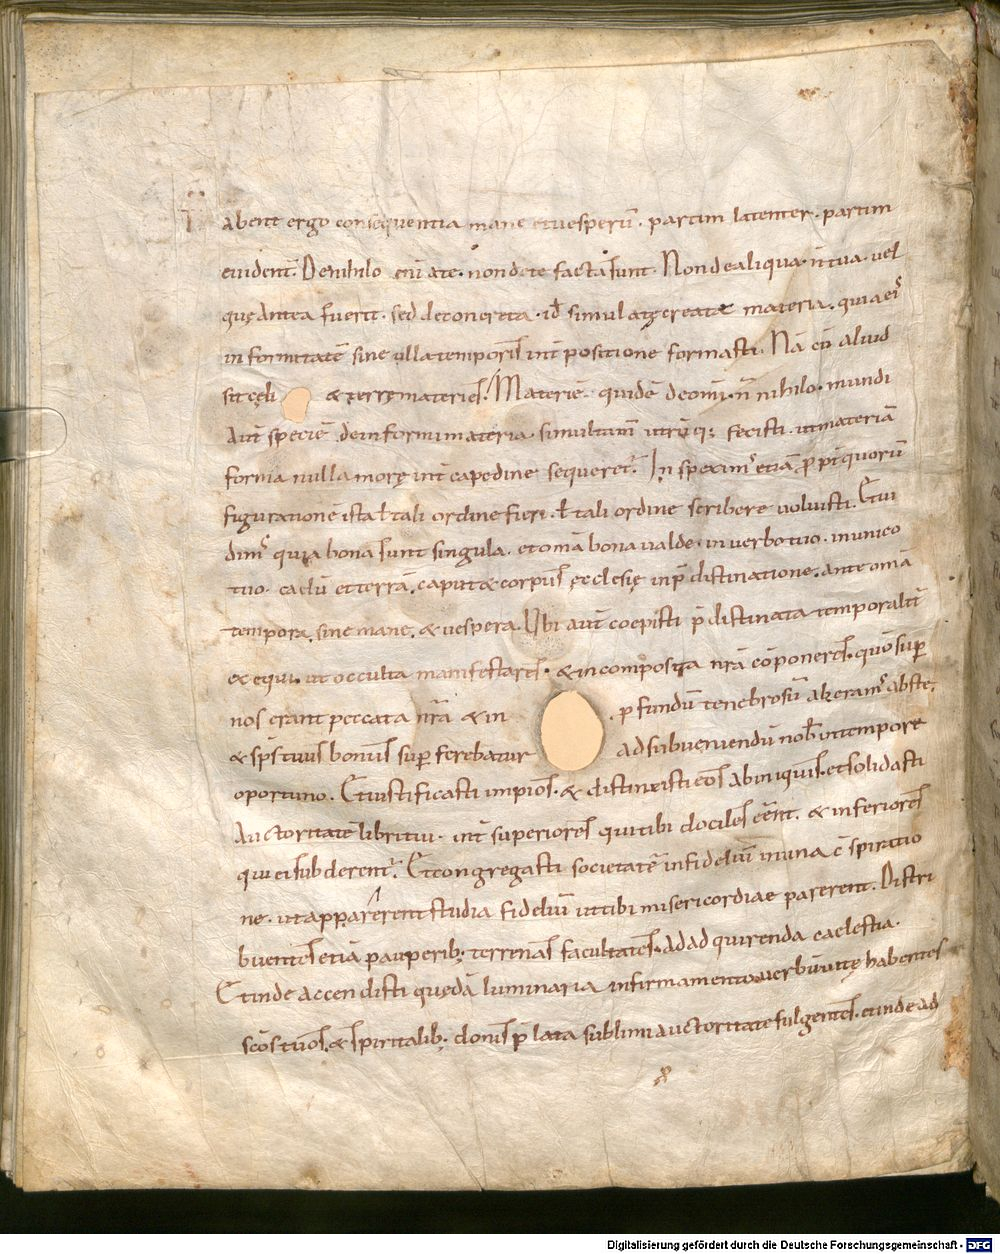 abent ergo consequentia mane et uesperū . partim latenter . partim
euident̄ . De nihilo enī a te . non de te facta sunt . Non de aliqua . n̄ tua . uel
quę antea fuerit . sed de concreta . id ÷ simul a te creata materia . quia eiꝰ
informitatē sine ulla temporis int̄ positione formasti . Nā cū aliud
sit cęli & terrę materies . Materiē quidē de om̄i n̄ nihilo . mundi
aut̄ speciē de informi materia . simul tam̄ utrūq; fecisti . ut materiā
forma nulla morę int̄capedine sequeret̄ . Inspeximꝰ etiā ꝓpt̄ quorū
figurationē ista ł tali ordine fieri . ł tali ordine scribere uoluisti . Et ui
dimꝰ quia bona sunt singula . et om̄a bona ualde . in uerbo tuo . in unico
tuo . caelū et terrā . caput & corpus ęcclesię in p̄distinatione . ante om̄a
tempora . sine mane . & uespera . Ubi aut̄ coepisti p̄distinata temporalit̄
exequi . ut occulta manifestares . & incomposita nr̄a cōponeres . qūo sup̄
nos erant peccata nr̄a & in . ꝓfundū tenebrosū abieramꝰ abs te .
& sp̄s tuus bonus sup̄ferebatur ad subueniendū nob̄ in tempore
oportuno . Et iustificasti impios . & distinxisti eos ab iniquis . et solidasti
auctoritatē libri tui . int̄ superiores qui tibi dociles eēnt . & inferiores
qui ei subderent̄ . Et congregasti societatē infidelium in una c̄spiratio
ne . ut apparerent studia fideliū ut tibi misericordiae parerent . Distri
buentes etiā pauperib; terrenas facultates . ad adquirenda caelestia .
Et inde accendisti quędā luminaria in firmamento uerbū uitę habentes
sc̄os tuos . & spiritalib; donis p̄lata sublimi auctoritate fulgentes . et inde ad
Digitalisierung gefördert durch die Deutsche Forschungsgemeinschaft - DFG